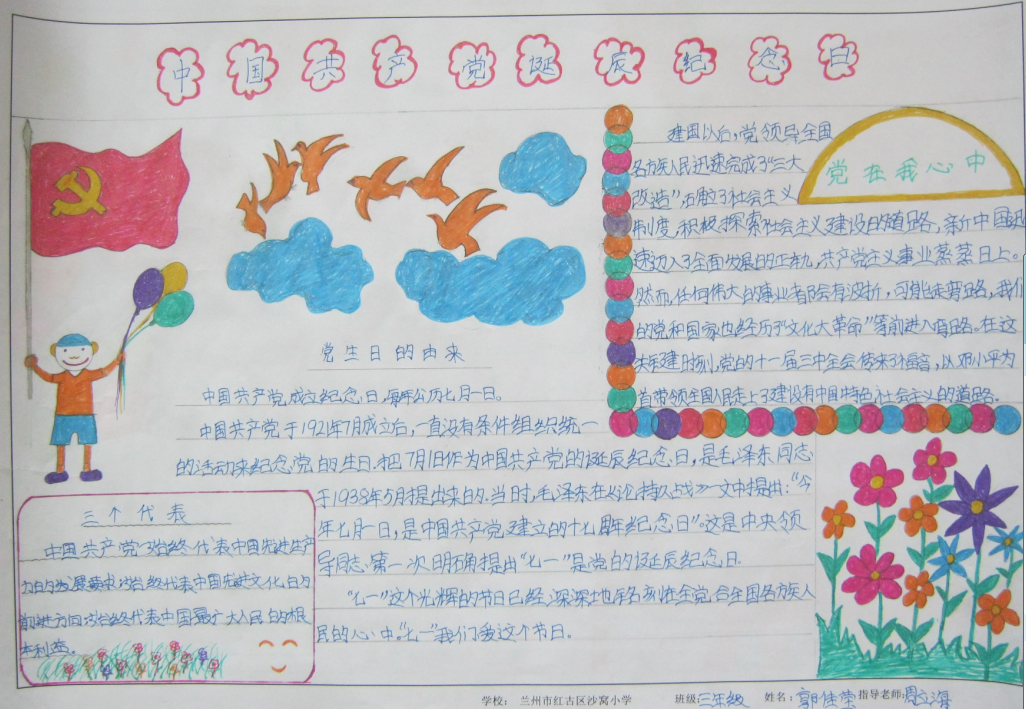 中国共产党诞辰纪念日
党生日的由来
中国共产党成立纪念日,每年公历七月一日。
中国共产党于1921年7月成立后,一直没有条件组织统一
的活动来纪念党的生日.把7月1日作为中国共产党的诞辰纪念日,是毛泽东同志
于1938年5月提出来的.当时,毛泽东在《论持久战》一文中提出:“今
年七月一日,是中国共产党建立的十七周年纪念日”.这是中央领
导同志第一次明确提出“七一”是党的诞辰纪念日.
“七一”这个光辉的节日已经深深地铭刻在全党合全国各族人
民的心中.“七一”我们爱这个节日.
三个代表
中国共产党始终代表中国先进生产
力的发展要求始终代表中国先进文化的
前进方向始终代表中国最广大人民的根
本利益。
党在我心中
建国以后,党领导全国
各族人民迅速完成了“三大
改造”,确立了社会主义
制度,积极探索社会主义建设的道路,新中国迅
速切入了全面发展的正轨,共产主义事业蒸蒸日上。
然而,任何伟大的事业都会有波折,可能走弯路,我们
的党和国家也经历了“文化大革命”等前进弯路.在这
关键时刻,党的十一届三中全会传来了福音,以邓小平为
首带领全国人民走上了建设有中国特色社会主义的道路.
学校: 兰州市红古区沙窝小学 班级:三年级 姓名:郭佳莹 指导老师:周立海